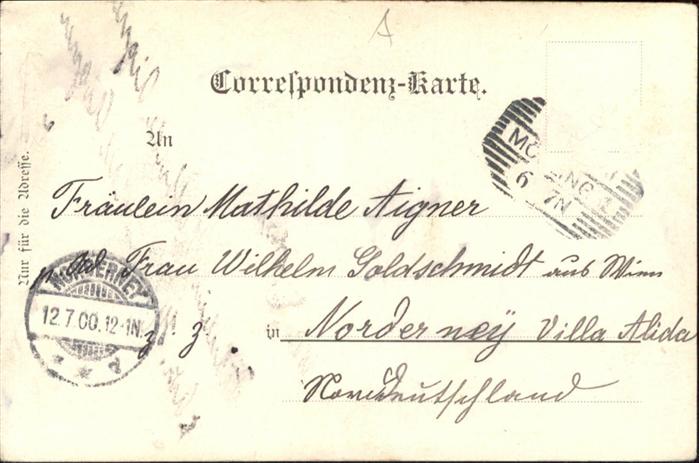 A
Correspondenz-Karte.
An
Fräulein Mathilde Aigner
p. Ad. Frau Wilhelm Goldschmidt aus Wien
z. Z. in Norderney Villa Alida
Norddeutschland
Nur für die Adresse.
NORDERNEY
12.7.00.12-1N.
6 7N